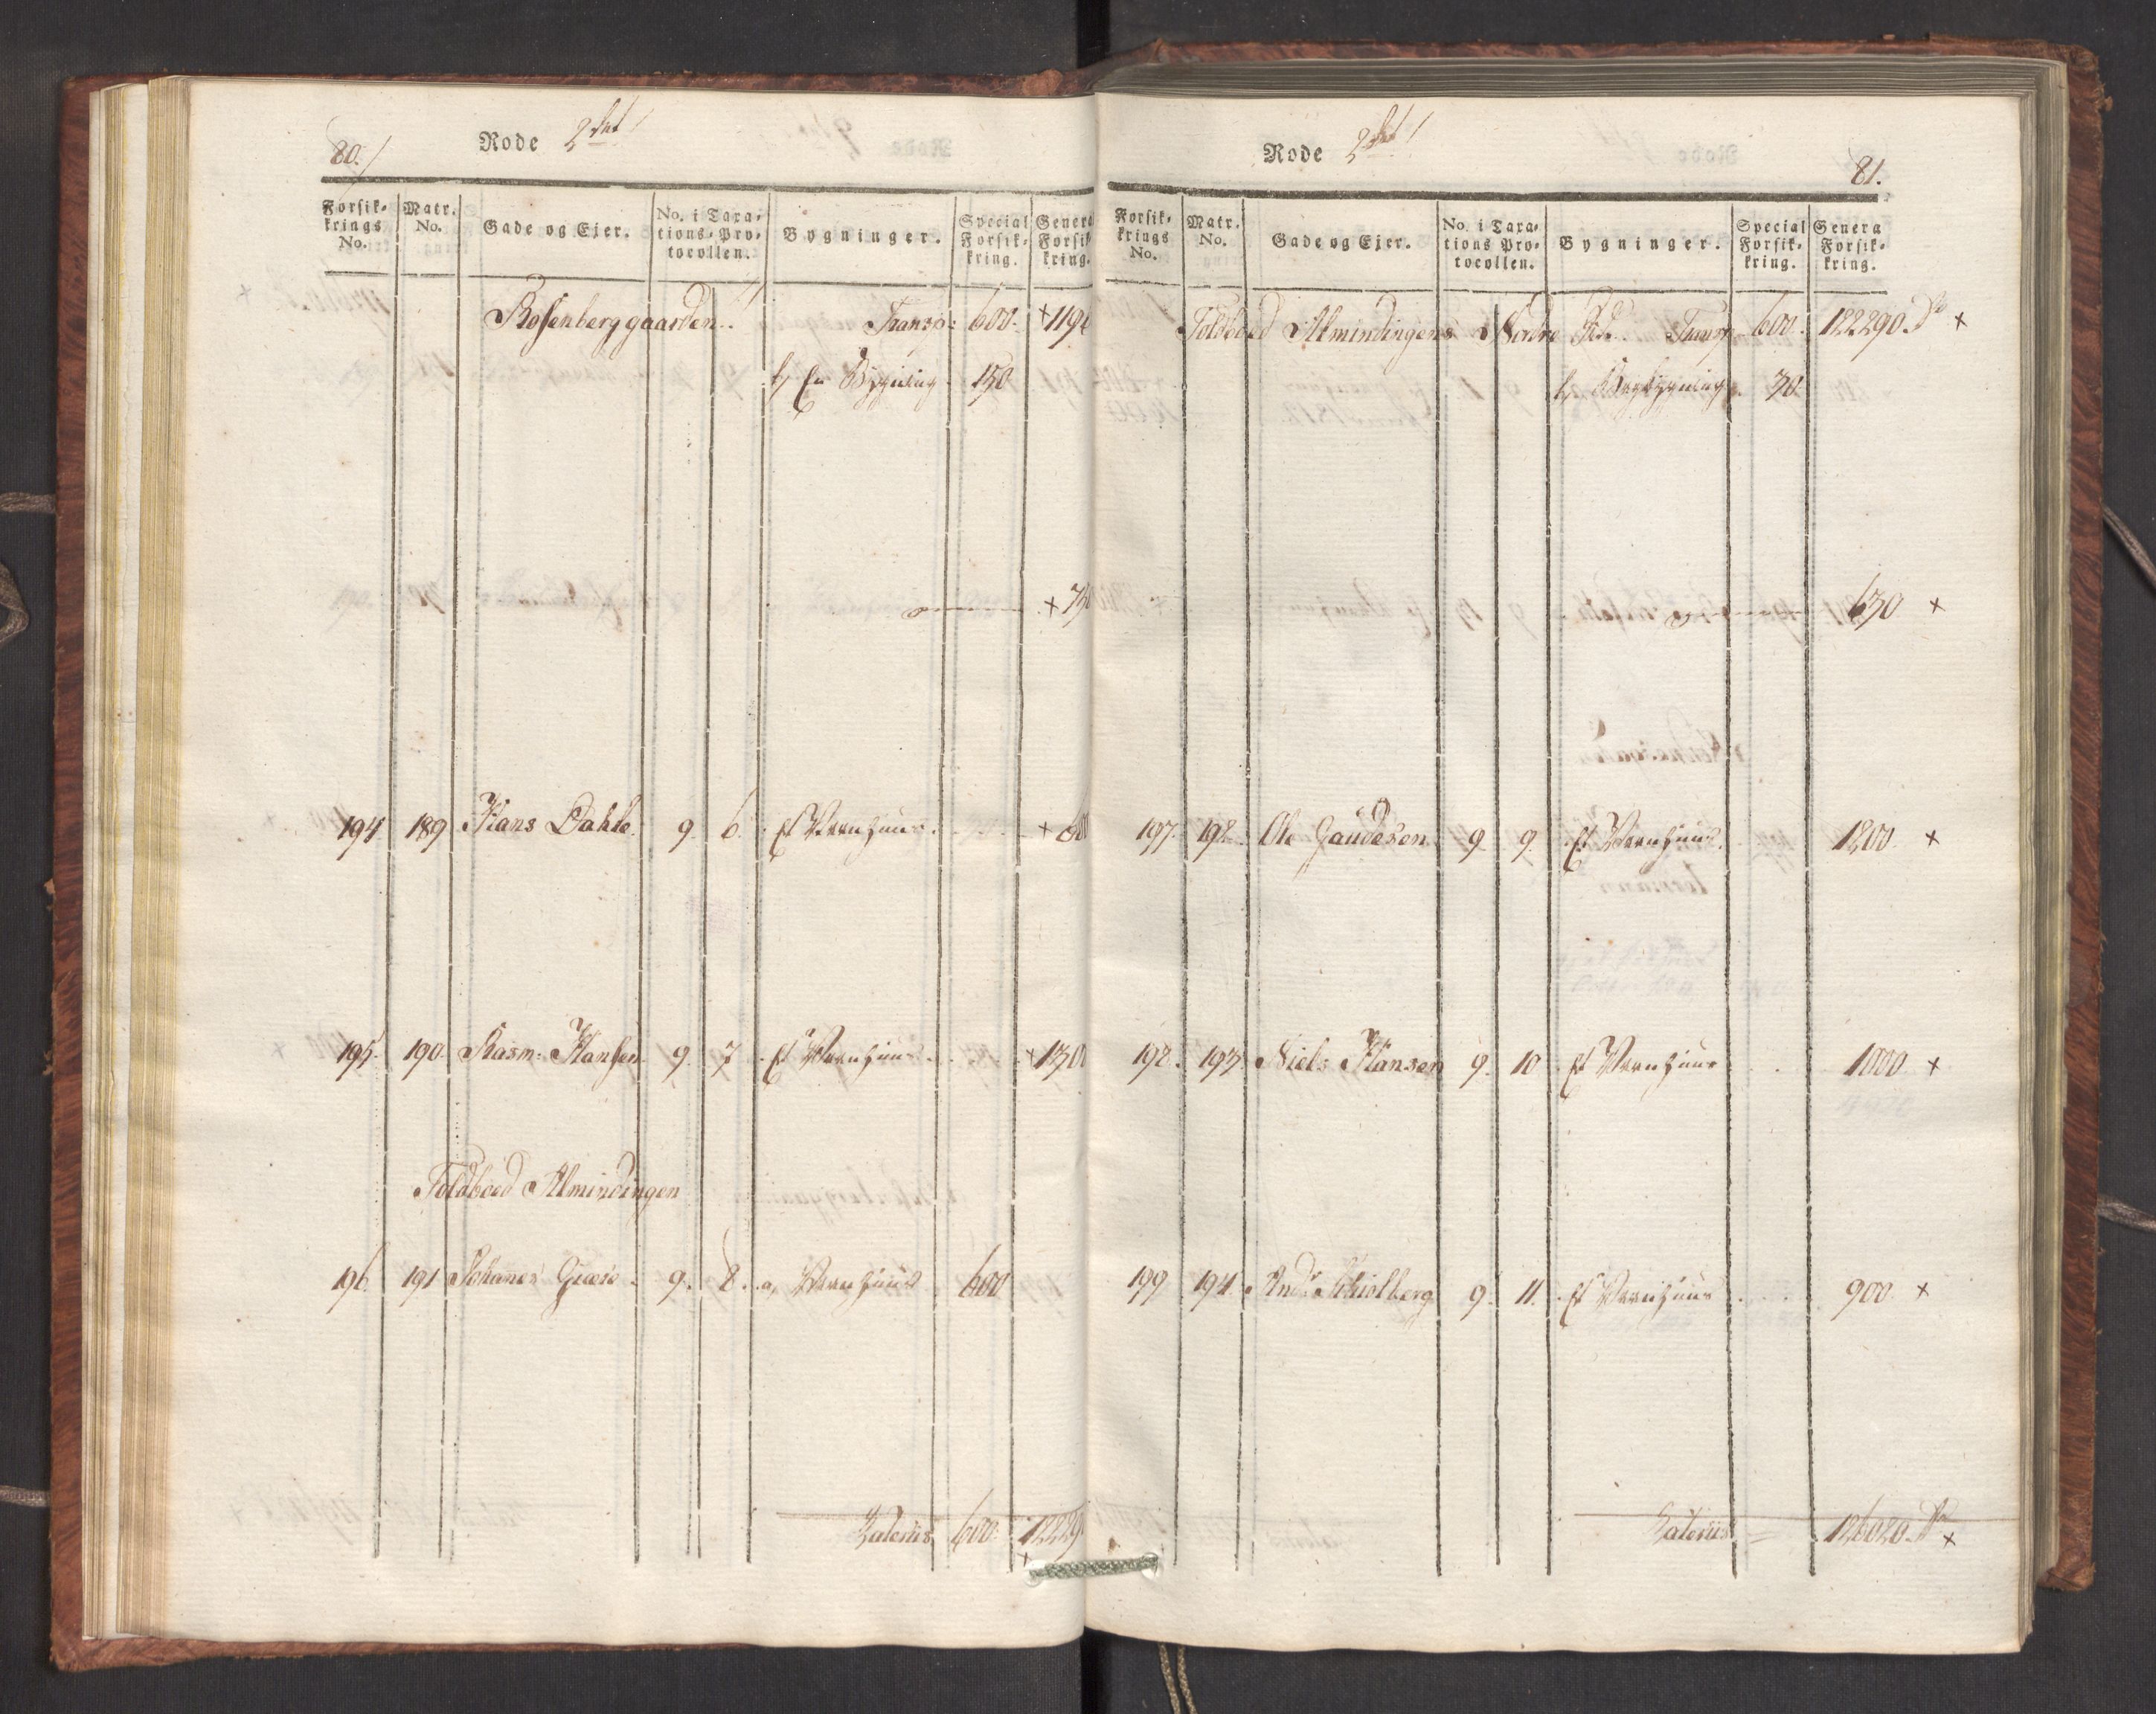 80.
Rode 2det
Forsik-
krings
No.
Matr.
No.
Gade og Ejer.
No. i Taxa-
tions-Pro-
tocollen.
Bygninger.
Special
Forsik-
kring.
Genera
Forsik
kring.
Rosenberggaarden. Transp: 600. + 119
b, En Bygning 150
+ 75
194 189 Hans Dahle. 9. 6. Et Vaanhuus. + 60
195. 190. Rasm: Hansen 9. 7. Et Vaanhuus. + 130
Toldboed Almindingen
196. 191 Johanes 9. 8. a, Vaanhuus 600
Lateriis 600. 12229
+
Rode 2det
81.
Forsik-
krings
No.
Matr.
No.
Gade og Ejer.
No. i Taxa-
tions Pro-
tocollen.
Bygninger.
Special
Forsik-
kring.
Genera
Forsik-
kring.
Toldboed Almindingens Nordre Side. Transp 600. 122290. +
b, 30
630 +
197. 192. Ole Gaudesen 9. 9. Et Vaanhuus. 1200. +
198. 193. Niels Hansen 9. 10 Et Vaanhuus 1000 +
199 194. And: Schiolberg 9. 11. Et Vaanhuus 900 +
Lateriis 126020. +